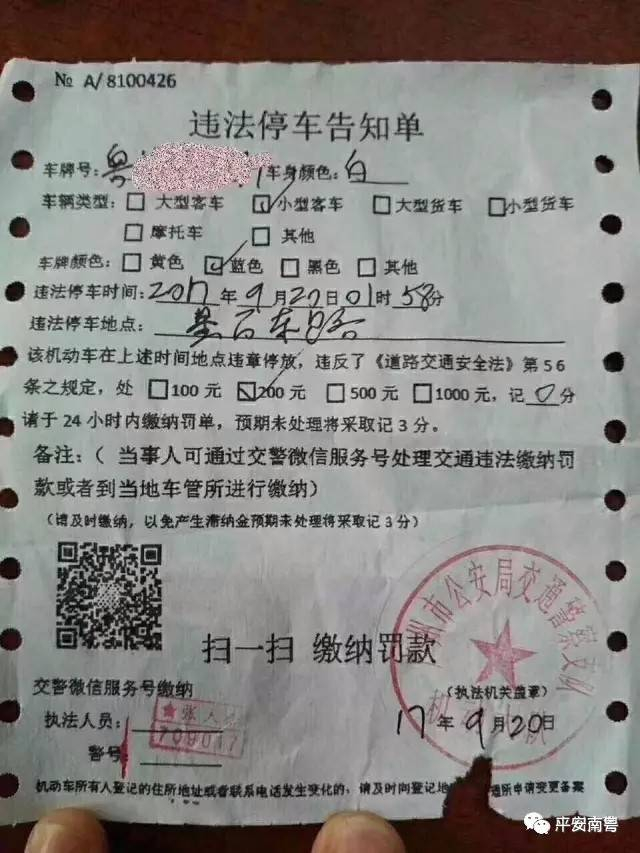 № A/8100426
违法停车告知单
车牌号：粤 车身颜色：白
车辆类型：□ 大型客车 ☑ 小型客车 □ 大型货车 □ 小型货车
□ 摩托车 □ 其他
车牌颜色：□ 黄色 ☑ 蓝色 □ 黑色 □ 其他
违法停车时间：2017年9月20日01时58分
违法停车地点：
该机动车在上述时间地点违章停放，违反了《道路交通安全法》第56
条之规定，处 □100元 ☑200元 □500元 □1000元，记 0 分
请于24小时内缴纳罚单，预期未处理将采取记3分。
备注：（ 当事人可通过交警微信服务号处理交通违法缴纳罚
款或者到当地车管所进行缴纳）
（请及时缴纳，以免产生滞纳金预期未处理将采取记3分）
州市公安局交通警察支队
扫一扫 缴纳罚款
交警微信服务号缴纳
（执法机关盖章）
执法人员：
17年9月20日
警号
机动车所有人登记的住所地址或者联系电话发生变化的，请及时向登记地 申请变更备案
平安南粤